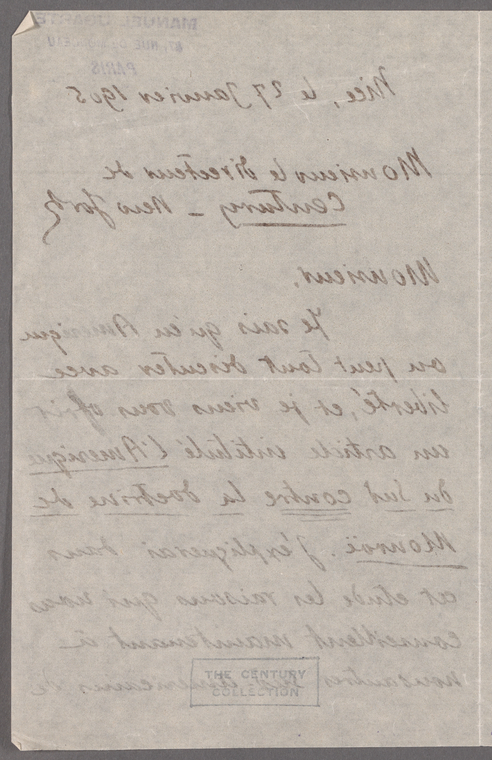 MANUEL UGARTE
PARIS
Nice, le 27 Janvier 1905
Monsieur le directeur de
Century - New York
Monsieur,
Je sais qu'en Amérique
on peut tout discuter avec
liberté, et je viens vous offrir
un article intitulé l'Amérique
du Sud contre la doctrine de
Monroë. J'expliquerai dans
cet etude les raisons que nous
conseillent maintenant à
nous autres sud-américains de
THE CENTURY
COLLECTION